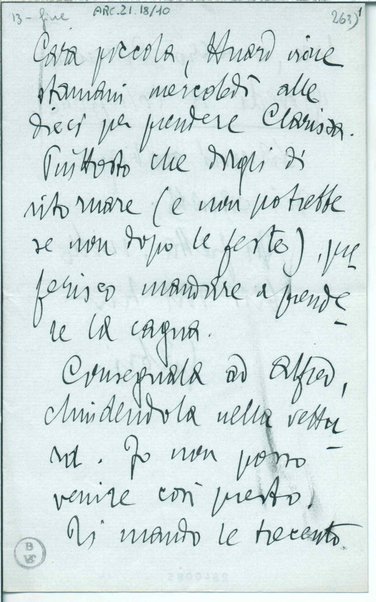 13 - fine
ARC.21.18/10
263) 1
Cara piccola, Huard viene
stamani mercoledì alle
dieci per prendere Clarissa.
Piuttosto che dirgli di
ritornare (e non potrebbe
se non dopo le feste), pre
ferisco mandare a prende-
re la cagna.
Consegnala ad Alfred,
chiudendola nella vettu-
ra. Io non posso
venire così presto.
Ti mando le trecento